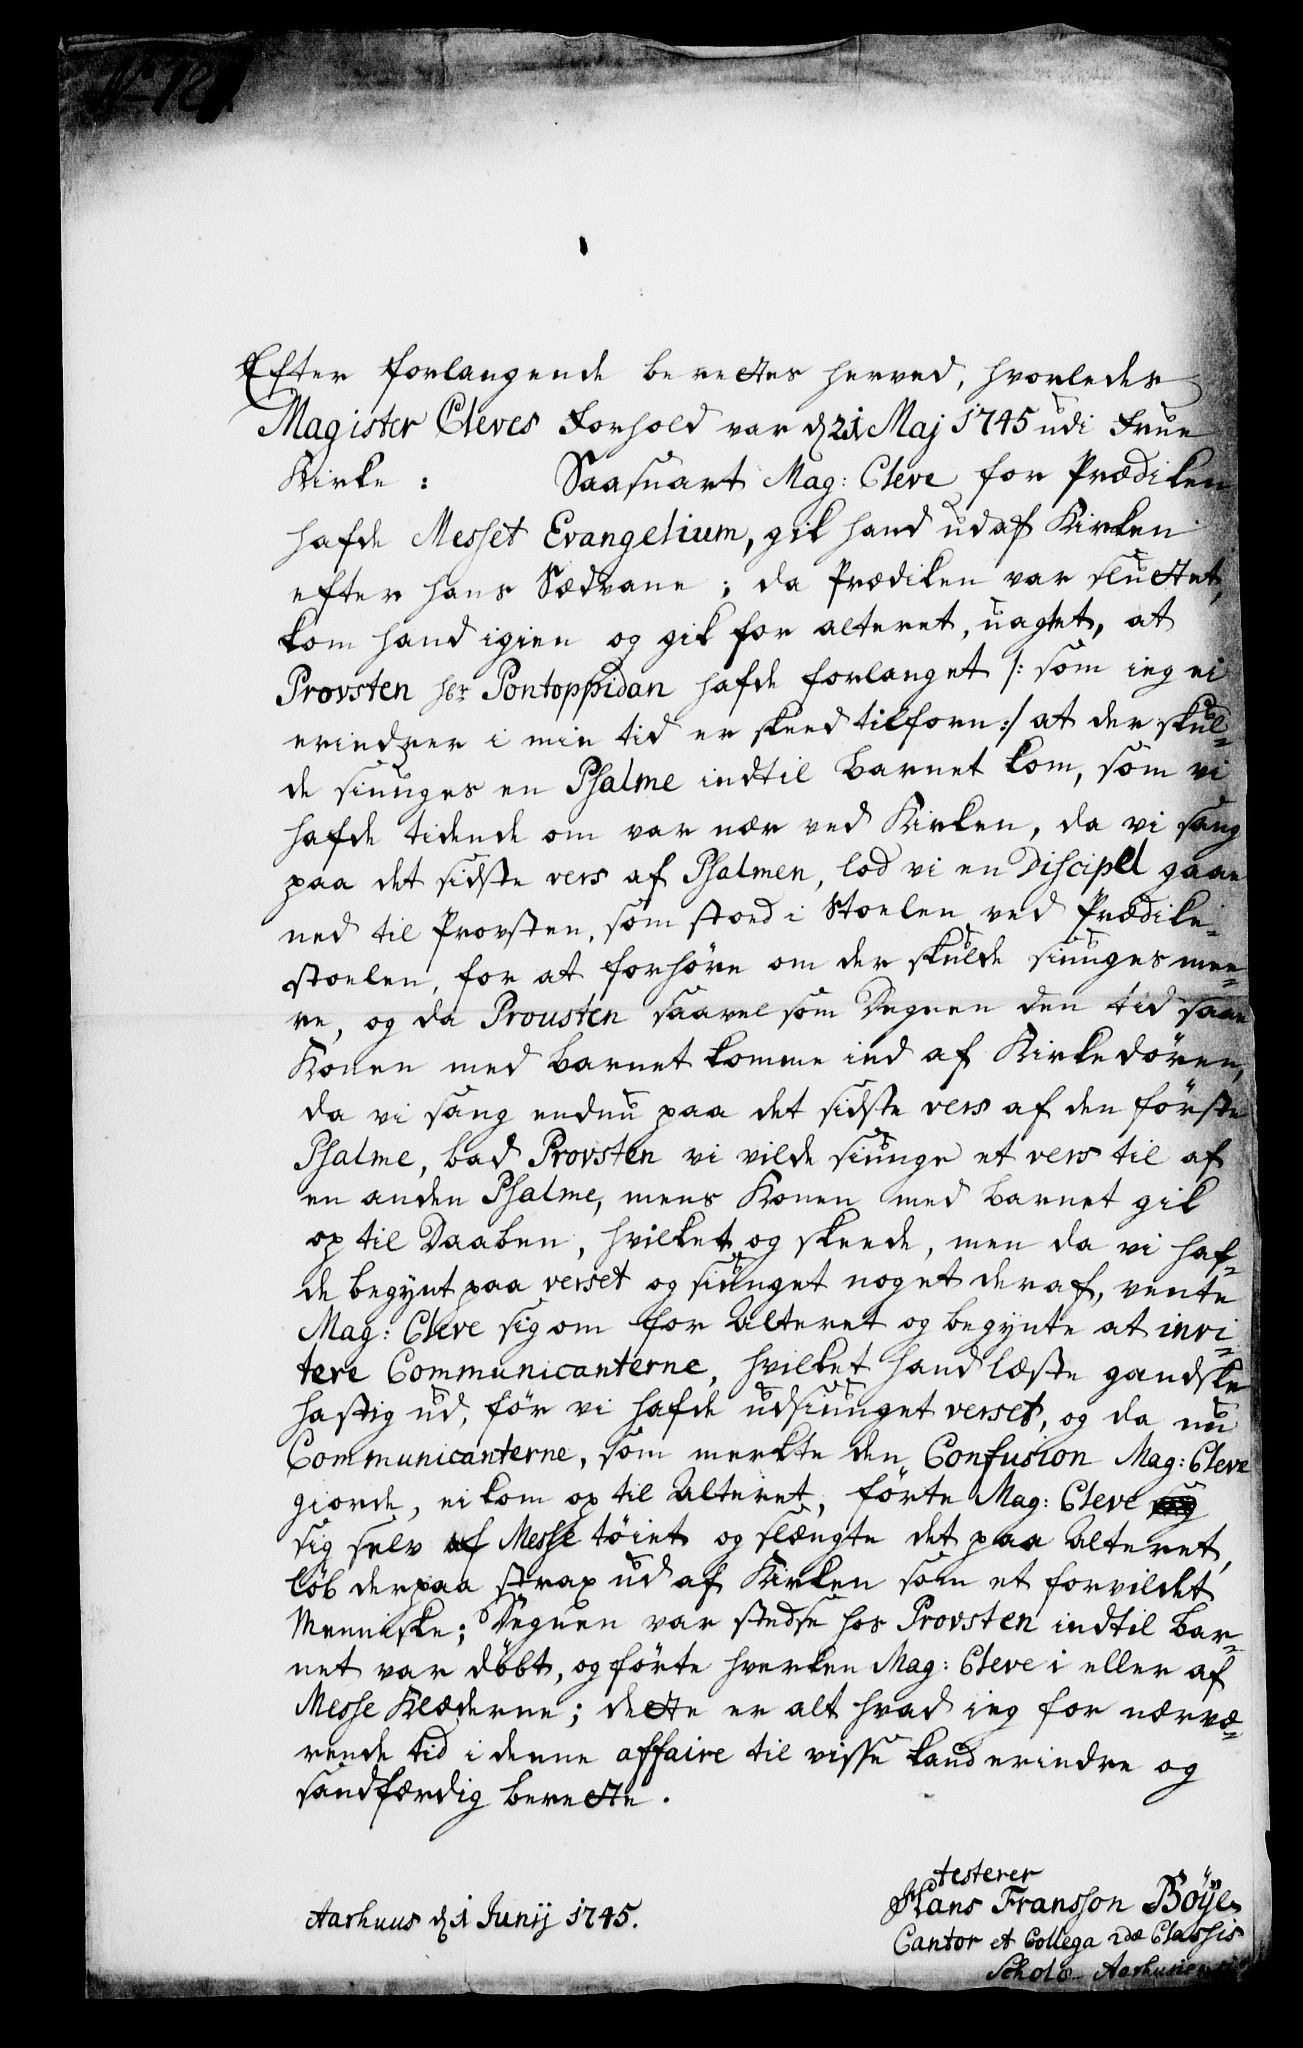 Efter forlangende berettes herved, hvorledes
Magister Cleves Forhold var d 21 Maj 1745 udi Frue
Kirke : Saasnart Mag: Cleve for Prædiken
hafde Messet Evangelium, gik hand ud af Kirken
efter hans Sædvane ; da Prædiken var sluttet,
kom hand igien og gik for alteret, uagtet, at
Provsten hr Pontoppidan hafde forlanget /: som ieg ei
erindrer i min tid er skeed tilforn :/ at der skul-
de siunges en Psalme indtil Barnet kom, som vi
hafde tidende om var nær ved Kirken, da vi sang
paa det sidste vers af Psalmen, lod vi en Discipel gaae
ned til Provsten, som stoed i Stoelen ved Prædike-
stoelen, for at forhöre om der skulde siunges mee-
re, og da Prousten saavel som Degnen den tid saae
Konen med Barnet komme ind af Kirkedören,
da vi sang endnu paa det sidste vers af den förste
Psalme, bad Provsten vi vilde siunge et vers til af
en anden Psalme, mens Konen med Barnet gik
op til Daaben, hvilket og skeede, men da vi haf-
de begynt paa verset og siunget noget deraf, vente
Mag: Cleve sig om for Alteret og begynte at invi-
tere Communicanterne, hvilket hand læste gandske
hastig ud, för vi hafde udsiunget verset, og da nu
Communicanterne, som merkte den Confusion Mag: Cleve
giorde, ei kom op til Alteret, förte Mag: Cleve
sig selv af Messe töiet og slængte det paa Alteret,
löb derpaa strax ud af Kirken som et forvildet
Menniske; Degnen var stedse hos Provsten indtil Bar-
net var döbt, og förte hverken Mag: Cleve i eller af
Messe Klæderne; dette er alt hvad ieg for nærvæ-
rende tid i denne affaire til visse kand erindre og
sandfærdig berette.
testerer
Aarhuus d 1 Junij 1745.
Hans Franssøn Böÿe
Cantor et Collega 2dæ Classis
Scholæ Aarhusiensis